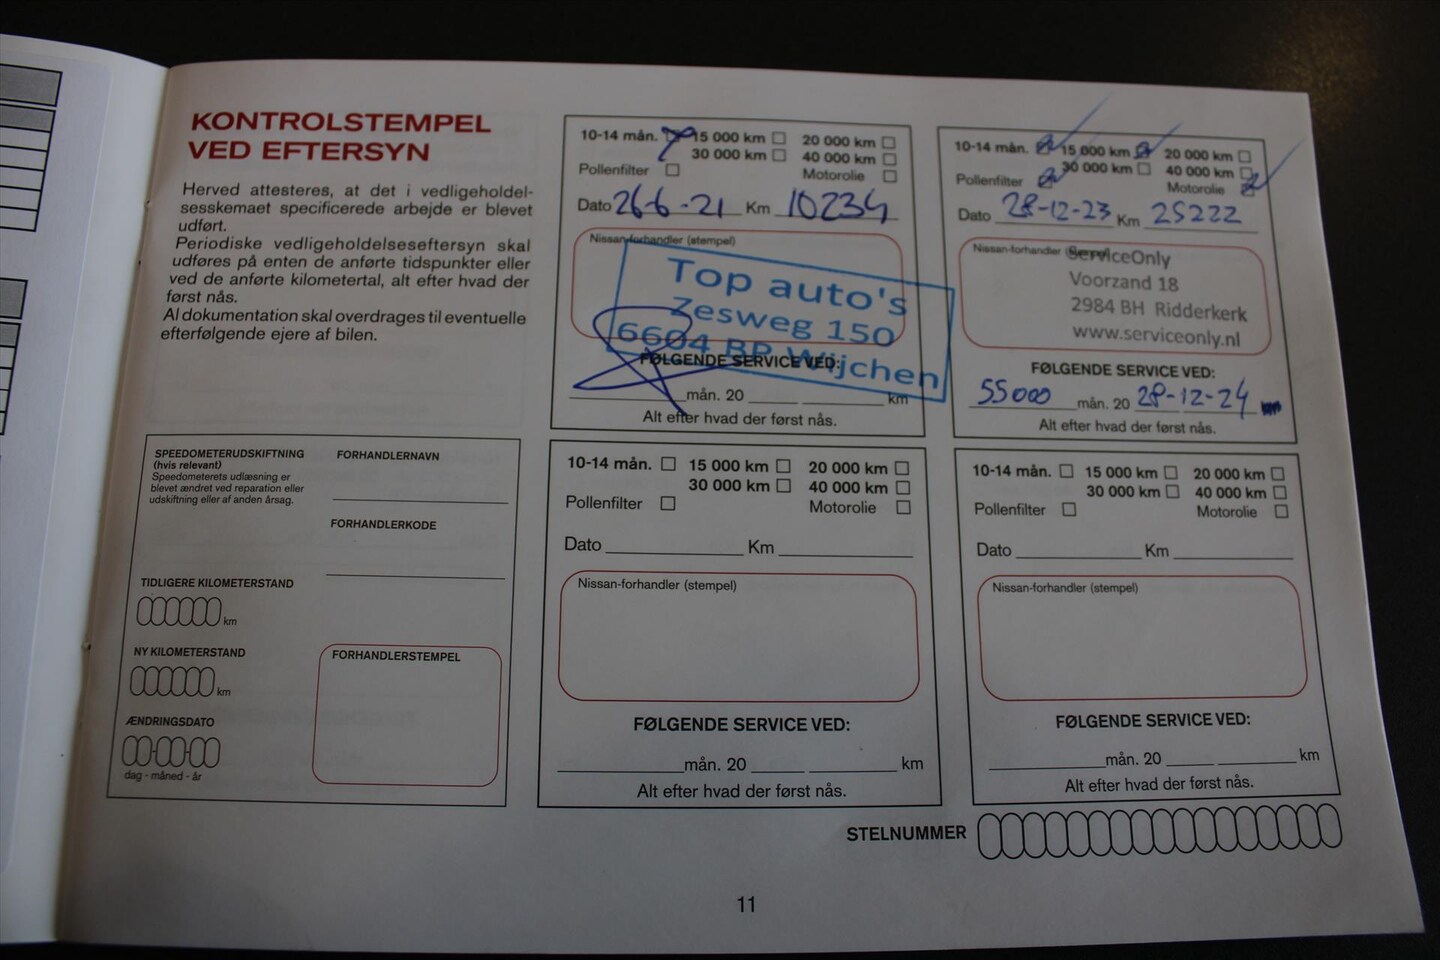 KONTROLSTEMPEL
VED EFTERSYN
Herved attesteres, at det i vedligeholdel-
sesskemaet specificerede arbejde er blevet
udført.
Periodiske vedligeholdelseseftersyn skal
udføres på enten de anførte tidspunkter eller
ved de anførte kilometertal, alt efter hvad der
først nås.
Al dokumentation skal overdrages til eventuelle
efterfølgende ejere af bilen.
SPEEDOMETERUDSKIFTNING
(hvis relevant)
Speedometerets udlæsning er
blevet ændret ved reparation eller
udskiftning eller af anden årsag.
FORHANDLERNAVN
FORHANDLERKODE
TIDLIGERE KILOMETERSTAND
km
NY KILOMETERSTAND
km
ÆNDRINGSDATO
dag - måned - år
FORHANDLERSTEMPEL
10-14 mån. 15 000 km 20 000 km
30 000 km 40 000 km
Pollenfilter Motorolie
Dato 26-6-21 Km 10234
Nissan-forhandler (stempel)
Top auto's
Zesweg 150
6604 BP Wijchen
FØLGENDE SERVICE VED:
mån. 20 km
Alt efter hvad der først nås.
10-14 mån. 15 000 km 20 000 km
30 000 km 40 000 km
Pollenfilter Motorolie
Dato 28-12-23 Km 25222
Nissan-forhandler
ServiceOnly
Voorzand 18
2984 BH Ridderkerk
www.serviceonly.nl
FØLGENDE SERVICE VED:
55000 mån. 20 28-12-24 km
Alt efter hvad der først nås.
10-14 mån. 15 000 km 20 000 km
30 000 km 40 000 km
Pollenfilter Motorolie
Dato Km
Nissan-forhandler (stempel)
FØLGENDE SERVICE VED:
mån. 20 km
Alt efter hvad der først nås.
10-14 mån. 15 000 km 20 000 km
30 000 km 40 000 km
Pollenfilter Motorolie
Dato Km
Nissan-forhandler (stempel)
FØLGENDE SERVICE VED:
mån. 20 km
Alt efter hvad der først nås.
STELNUMMER
11